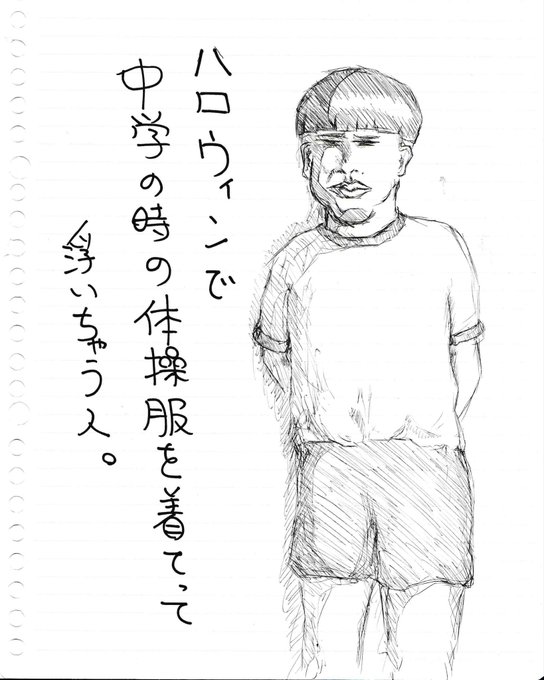 ハロウィンで
中学の時の体操服を着てって
浮いちゃう人。